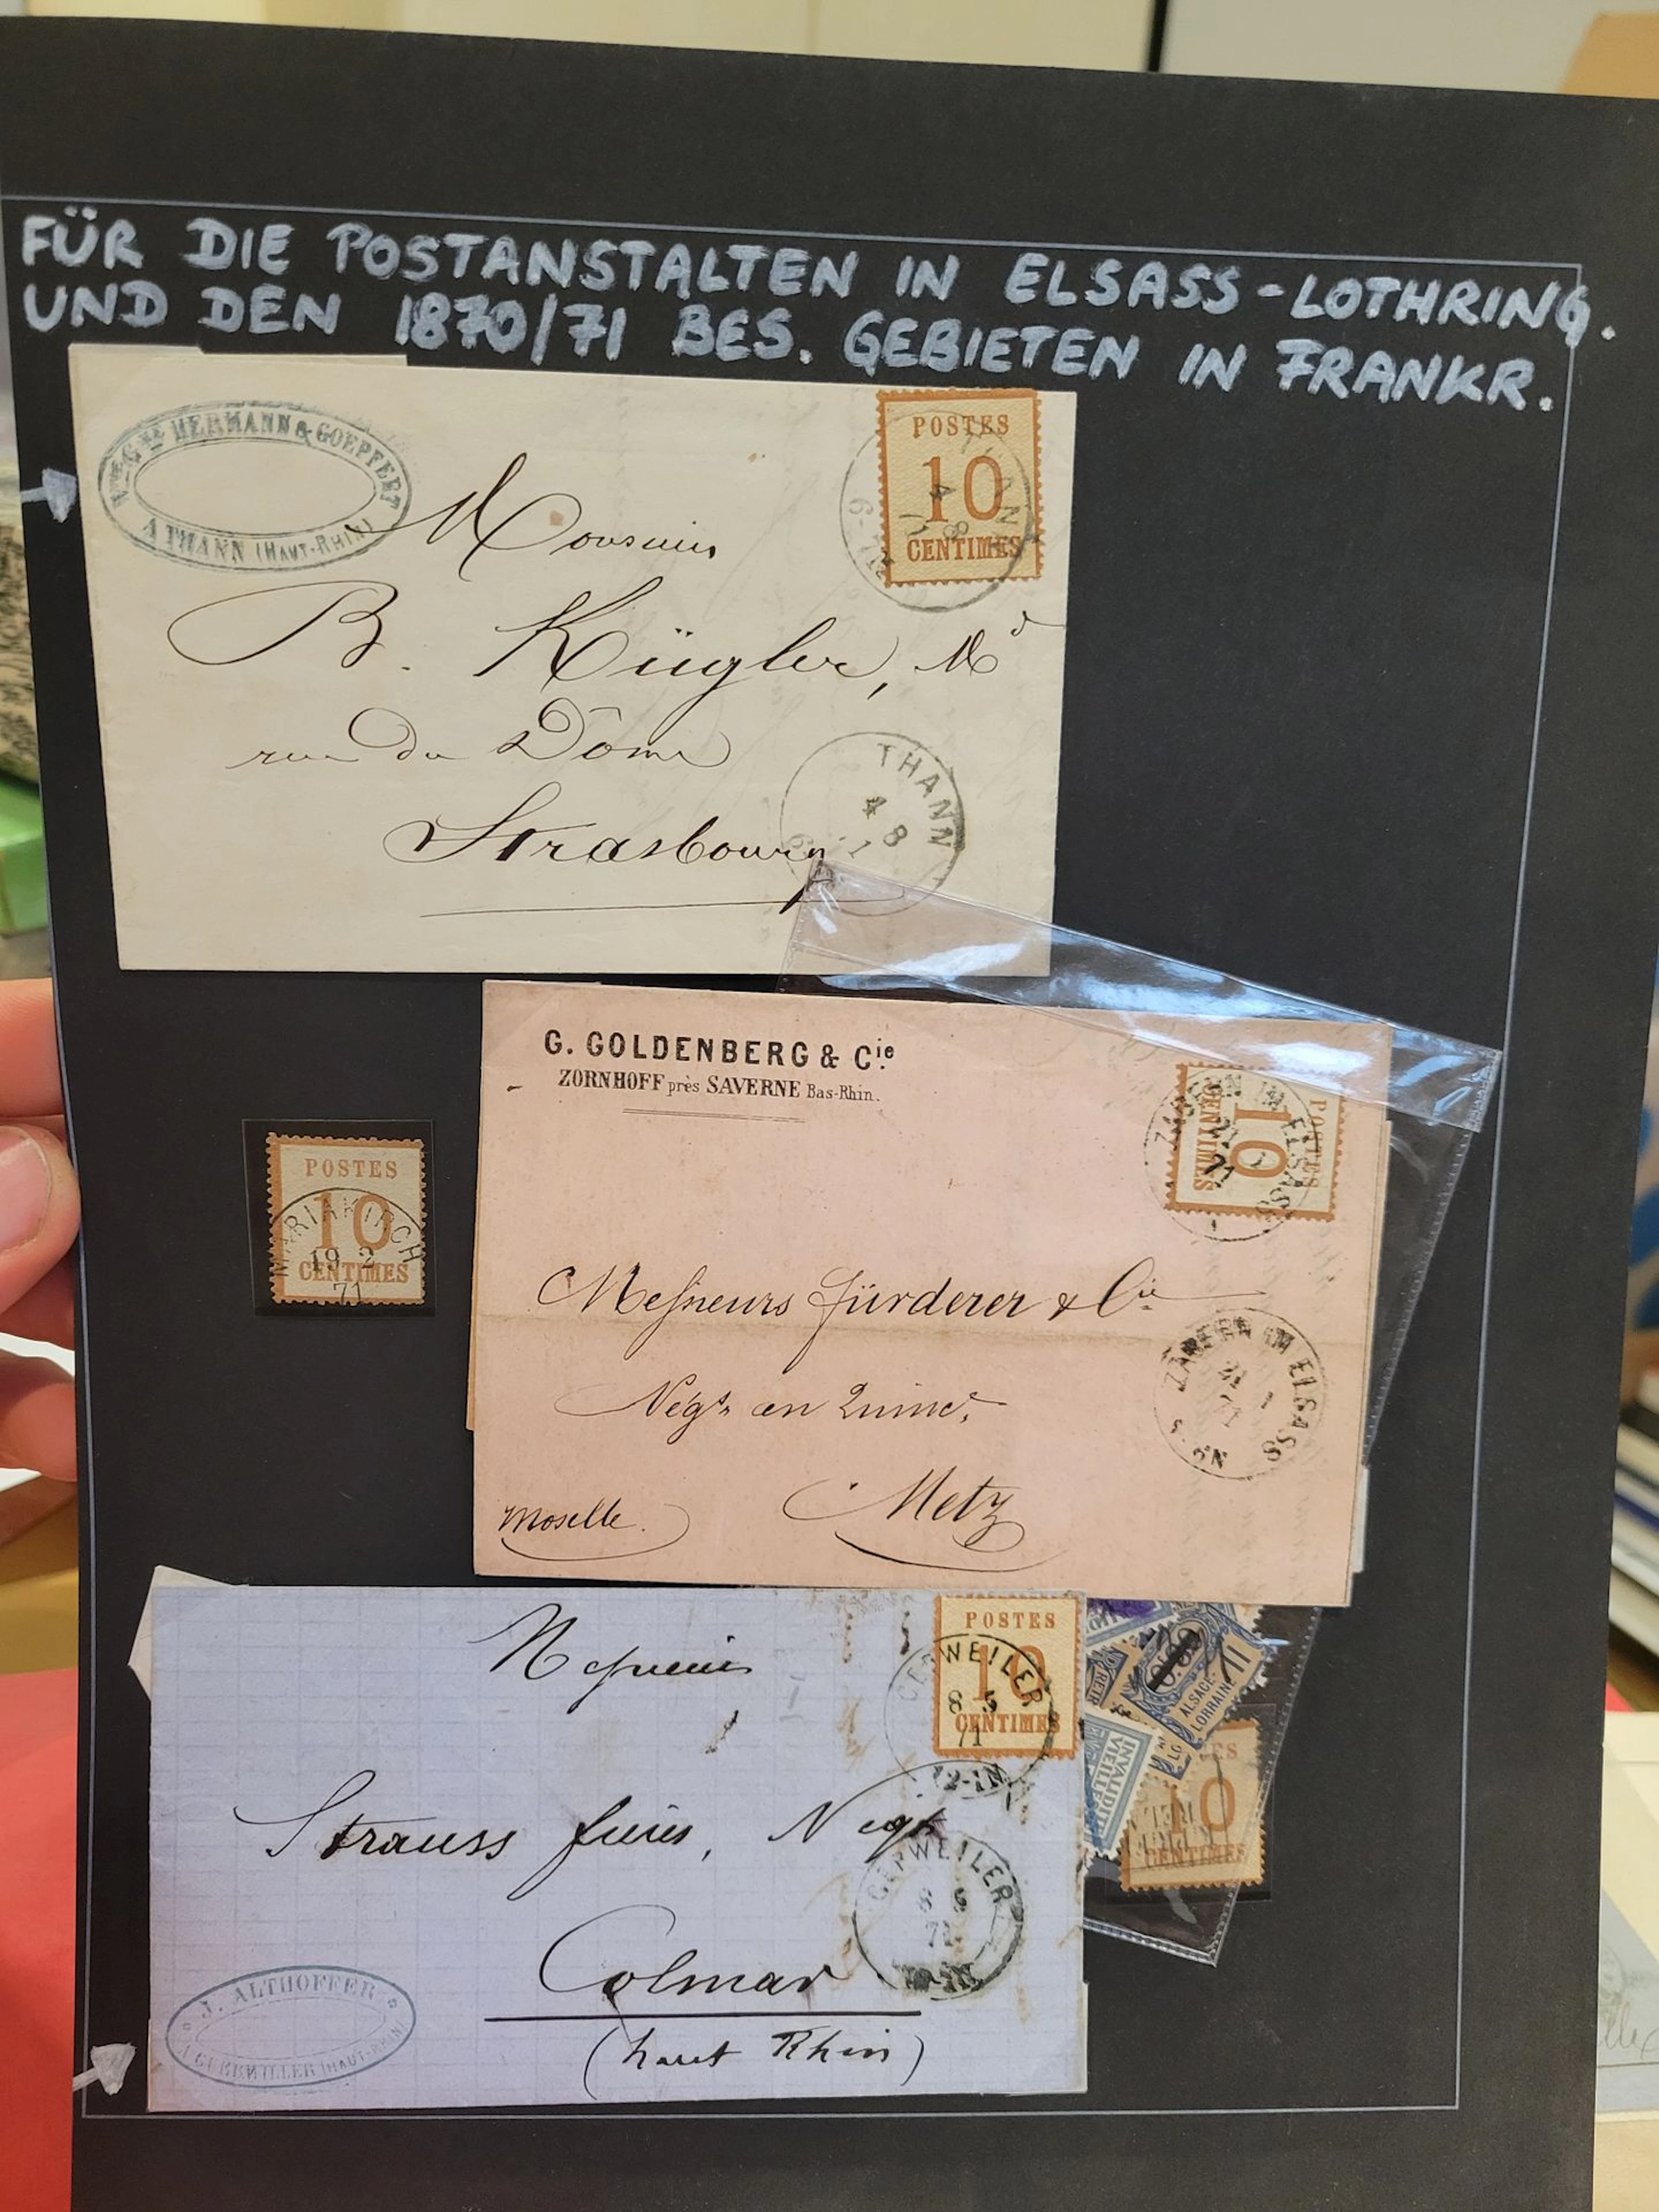 FÜR DIE POSTANSTALTEN IN ELSASS-LOTHRING.
UND DEN 1870/71 BES. GEBIETEN IN FRANKR.
HERMANN & GOEPFERT
A THANN (HAUT-RHIN)
POSTES
10
CENTIMES
4 8
Monsieur
B. Kügler, Md
rue du Dôme
Strasbourg
THANN
4 8
G. GOLDENBERG & Cie
ZORNHOFF près SAVERNE Bas-Rhin.
POSTES
10
CENTIMES
ZABERN IM ELSASS
POSTES
10
CENTIMES
MARIAKIRCH
19 2
71
Messieurs Fürderer & Cie
Négts en
Metz
Moselle.
ZABERN IM ELSASS
21 1
71
Messieurs
Strauss frères, Négts
Colmar
(haut Rhin)
POSTES
10
CENTIMES
GEBWEILER
8 5
71
12-1N
GEBWEILER
J. ALTHOFFER
(HAUT-RHIN)
ALSACE-
LORRAINE
INVALIDITÉ
10
CENTIMES